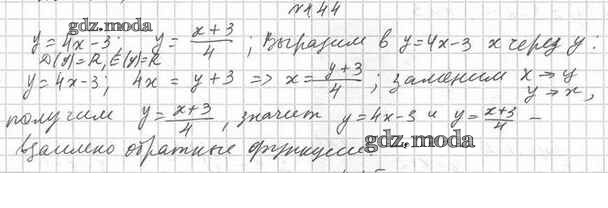 №144
gdz.moda
y=4x-3; y=\frac{x+3}{4}; Выразим в y=4x-3 x через y:
D(y)=R, E(y)=R
y=4x-3; 4x=y+3 => x=\frac{y+3}{4}; заменим x→y
y→x,
получим y=\frac{x+3}{4}, значит y=4x-3 и y=\frac{x+3}{4} –
gdz.moda
взаимно обратные функции.